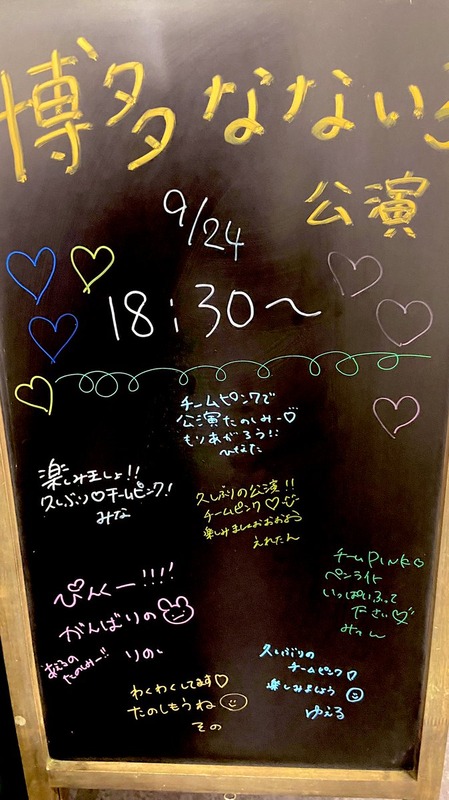 博多なないろ
公演
9/24
18:30〜
チームピンクで
公演たのしみー♡
もりあがろう!!
ひなた
楽しみましょ!!
久しぶり♡チームピンク!
みな
久しぶりの公演!!
チームピンク♡
楽しみましょおおおよう
えれたん
チームPINK♡
ペンライト
いっぱいふって
下さい♡
みっん
ぴんくー!!!!
がんばりの
あえるの
たのしみー!!
りのい
久しぶりの
チームピンク♡
楽しみましょう
ゆえる
わくわくしてます♡
たのしもうね
その